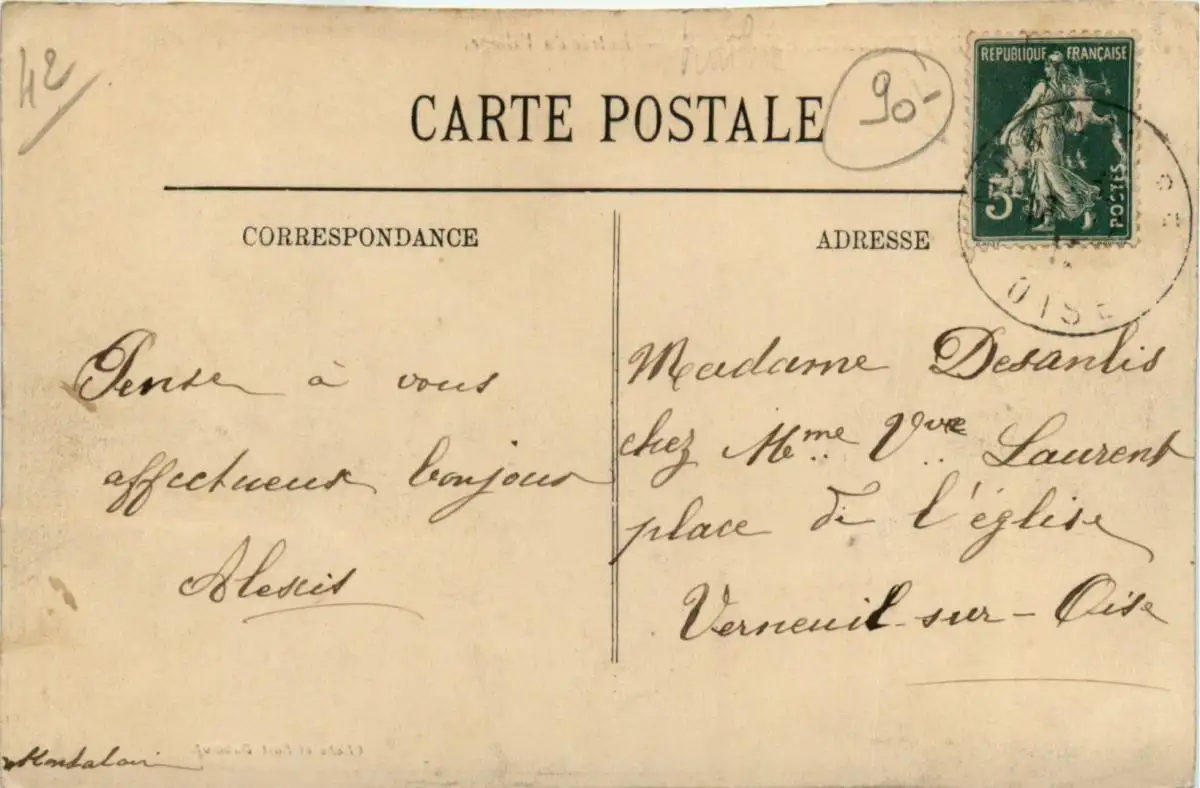 42
CARTE POSTALE
90
REPUBLIQUE FRANÇAISE
5
POSTES
OISE
CORRESPONDANCE
ADRESSE
Pense à vous
affectueux bonjour
Alexis
Madame Desanlis
chez Mme Vve Laurent
place de l'église
Verneuil-sur-Oise